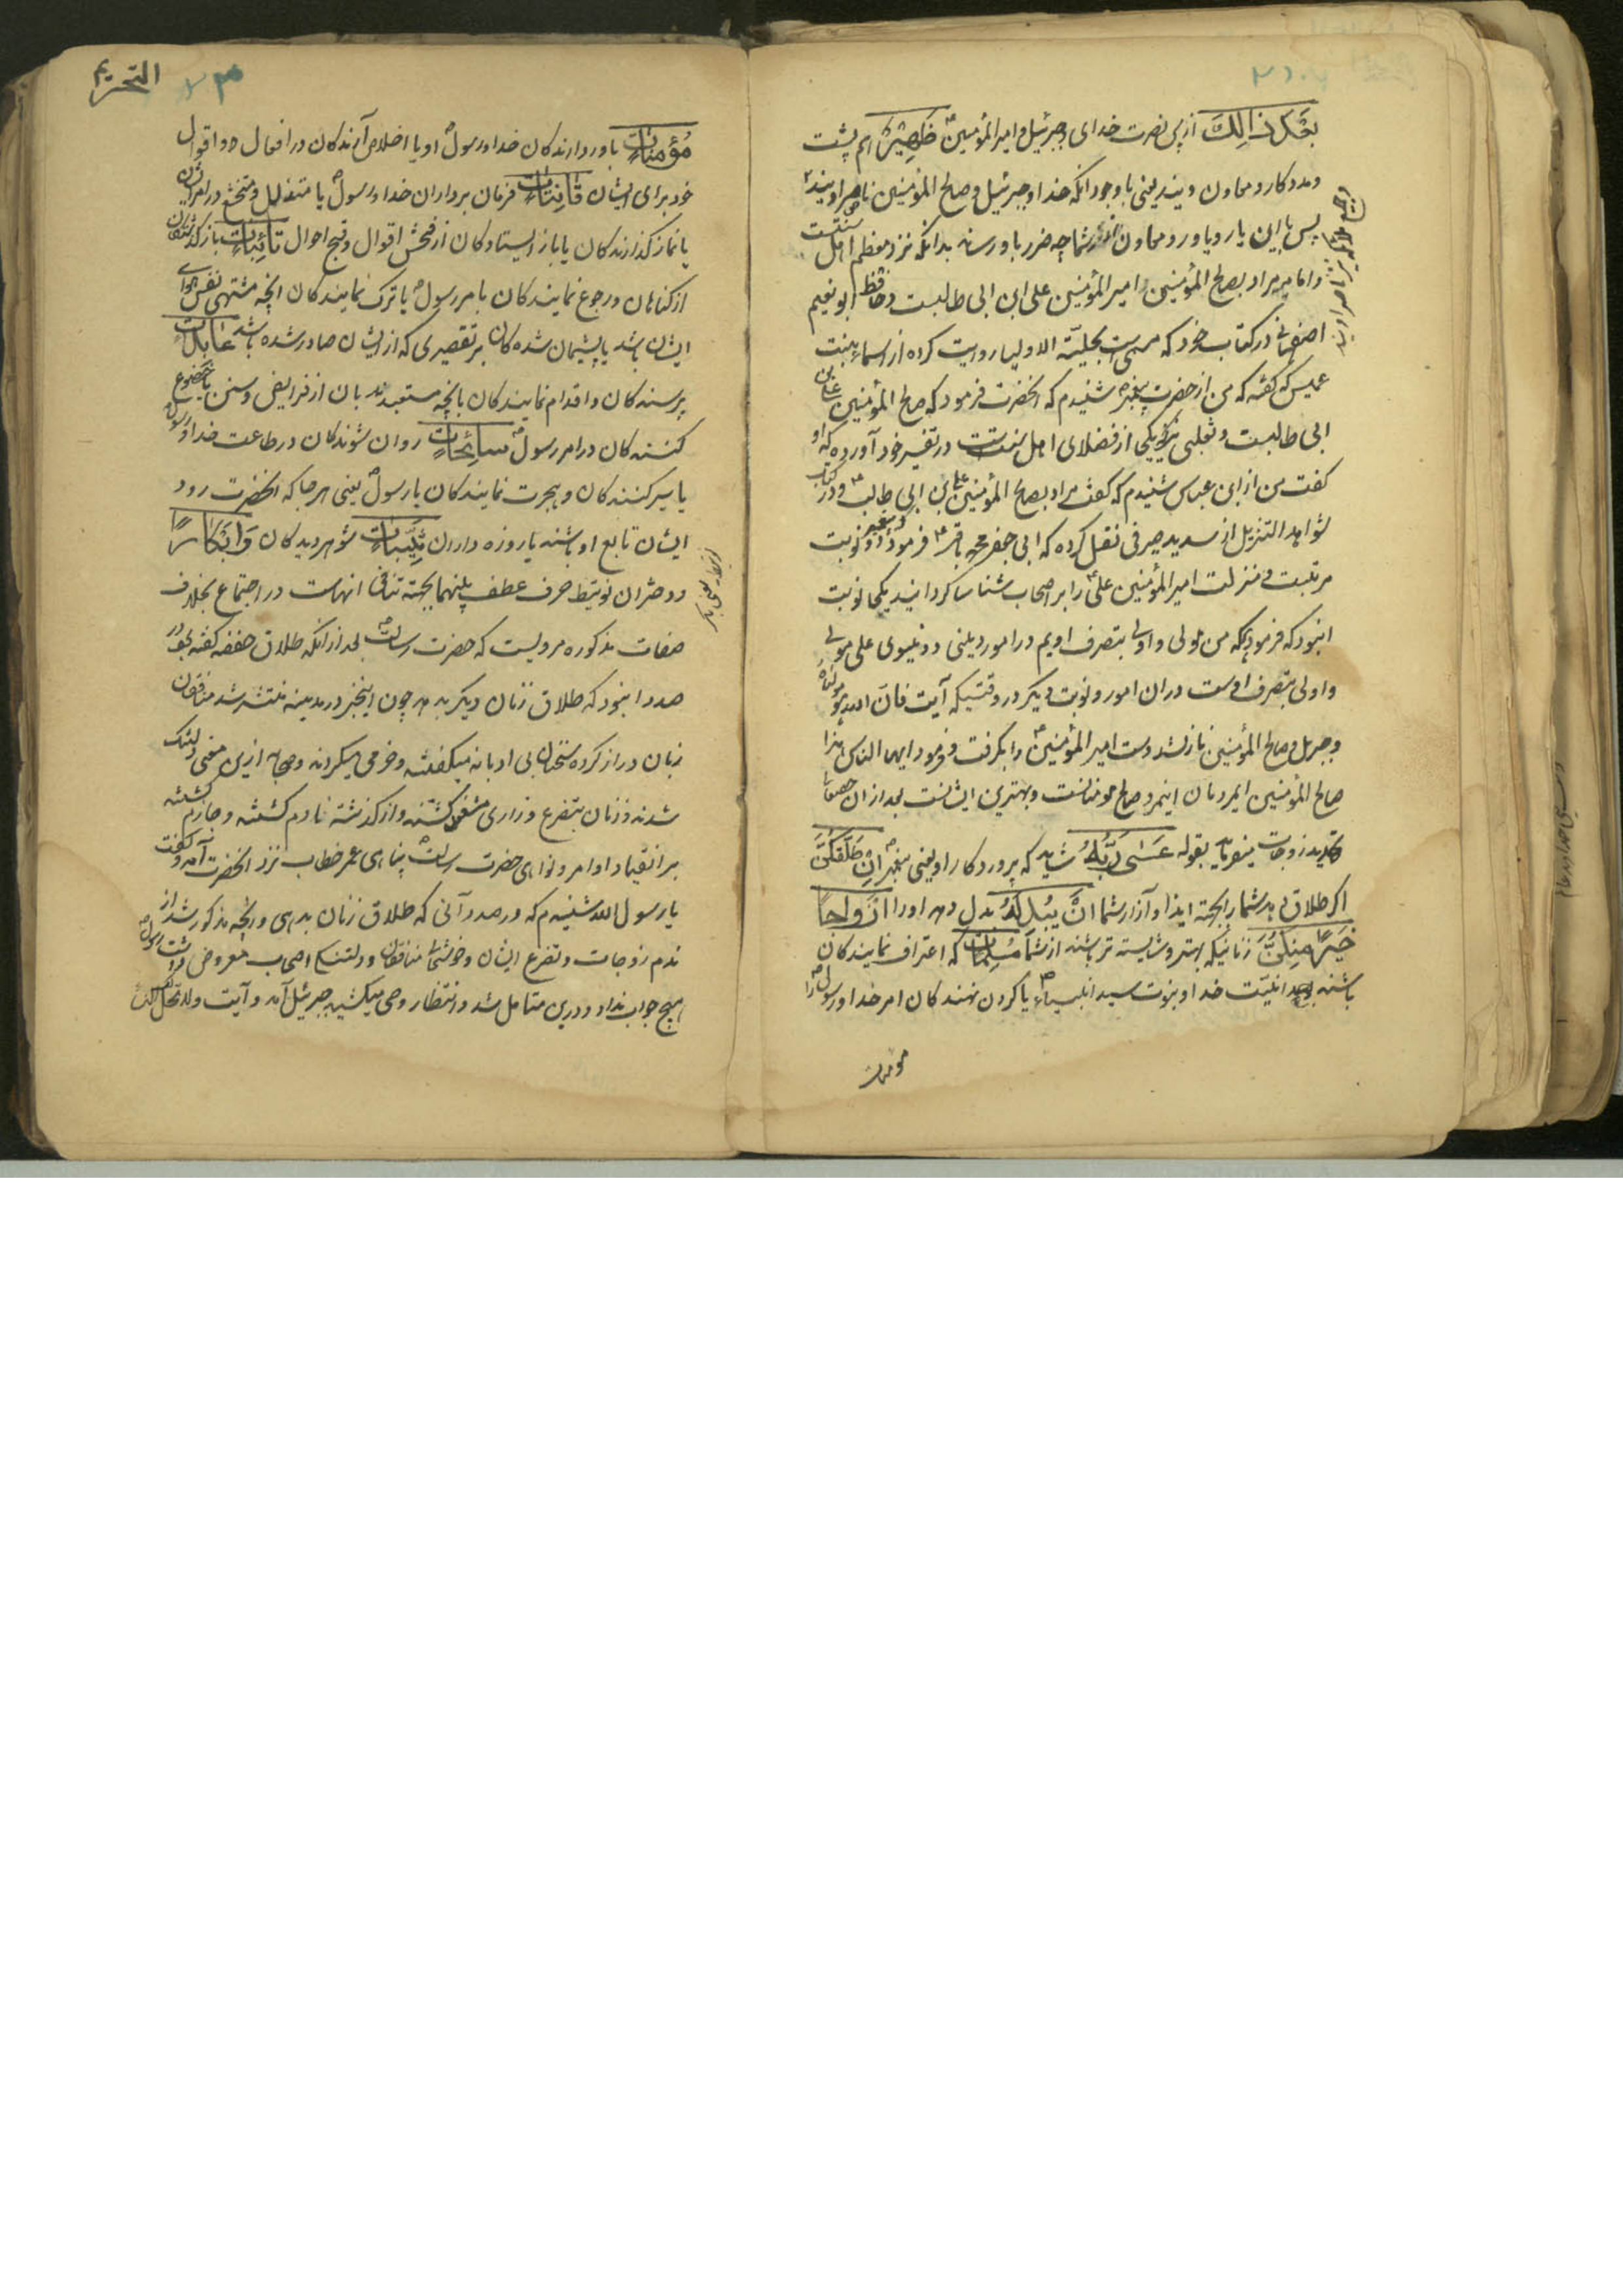 بَعْدَ ذٰلِكَ از پس نصرت خدای و جبرئیل و امیر المؤمنین ظَهِیْرٌ هم پشت
و مددکار و معاون ویند یعنی با وجود آنکه خدا و جبرئیل و صالح المؤمنین ناصر اویند
پس با این یار و یاور و معاون شما چه ضرر باو رساند بدانکه نزد معظم اهل سنت
و امامیه مراد بصالح المؤمنین امیر المؤمنین علی ابن ابی طالبست و حافظ ابو نعیم
اصفهانی در کتاب خود که مسمی است بحلیة الاولیا روایت کرده از اسماء بنت
عمیس که گفته که من از حضرت پیغمبر شنیدم که آنحضرت فرمود که صالح المؤمنین علی بن
ابی طالبست و ثعلبی که یکی از فضلای اهل سنت است در تفسیر خود آورده که او
گفت من از ابن عباس شنیدم که گفت مراد بصالح المؤمنین علی بن ابی طالب و در کتاب
شواهد التنزیل از سدیر صیرفی نقل کرده که ابی جعفر محمد باقر فرمود پیغمبر دو نوبت
مرتبت و منزلت امیر المؤمنین علی را بر اصحاب شناسا گردانید یکی نوبت
این بود که فرمود هر که من مولی و اولی بتصرف اویم در امور دینی و دنیوی علی مولی
و اولی بتصرف اوست در آن امور و نوبت دیگر در وقتیکه آیت فان الله هو مولاه
و جبریل و صالح المؤمنین نازل شد دست امیر المؤمنین را بگرفت و فرمود ایها الناس هذا
صالح المؤمنین ای مردمان این مرد صالح مومنانست و بهترین ایشانست بعد از آن
تهدید زوجات میفرماید بقوله عَسٰى رَبُّهٗ شاید که پروردگار او یعنی پیغمبر اِنْ طَلَّقَكُنَّ
اگر طلاق دهد شما را بجهة ایذا و آزار شما اَنْ یُبْدِلَهٗ بدل دهد او را اَزْوَاجًا
خَیْرًا مِنْكُنَّ زنانیکه بهتر و شایسته تر باشند از شما مُسْلِمَاتٍ که اعتراف نمایندگان
باشند بوحدانیّت خدا و بنوت سید انبیاء یا گردن نهندگان امر خدا و رسول را
مومنات
التحریم
مُؤْمِنَاتٍ باور دارندگان خدا و رسول او یا اخلاص آرندگان در افعال و اقوال
خود برای ایشان قَانِتَاتٍ فرمان برداران خدا و رسول یا متذلل و متخشع در امر ایشان
یا نماز گذارندگان یا باز ایستادگان از فحش اقوال و قبح احوال تَائِبَاتٍ باز گذشتگان
از گناهان و رجوع نمایندگان بامر رسول یا ترک نمایندگان آنچه مشتهی نفس و هوای
ایشان باشد یا پشیمان شده گان بر تقصیری که از ایشان صادر شده باشد عَابِدَاتٍ
پرستندگان و اقدام نمایندگان بآنچه متعبدند بآن از فرایض و سنن یا خضوع
کننده گان در امر رسول سَائِحَاتٍ روان شوندگان در طاعت خدا و رسول
یا سیر کنندگان و هجرت نمایندگان با رسول یعنی هر جا که آنحضرت رود
ایشان تابع او باشند یا روزه داران ثَیِّبَاتٍ شوهر دیدگان وَ اَبْكَارًا
و دختران توسیط حرف عطف بینهما بجهة تنافی آنهاست در اجتماع بخلاف
صفات مذکوره مرویست که حضرت رسالت بعد از آنکه طلاق حفصه گفته بود در
صدد این بود که طلاق زنان دیگر بدهد چون این خبر در مدینه منتشر شد منافقان
زبان دراز کرده سخنان بی ادبانه میگفتند و خرمی میکردند و صحابه ازین معنی دلتنگ
شدند و زنان بتضرع و زاری مشغول گشتند و از گذشته نادم گشتند و جازم گشتند
بر انقیاد اوامر و نواهی حضرت رسالت پناهی عمر خطاب نزد آنحضرت آمد و گفت
یا رسول الله شنیدم که در صدد آنی که طلاق زنان بدهی و آنچه مذکور شد از
ندم زوجات و تضرع ایشان و خوشحالی منافقان و دلتنگی اصحاب معروض داشت رسول
هیچ جواب نداد و درین متامل شد و انتظار وحی میکشید جبرئیل آمد و آیت